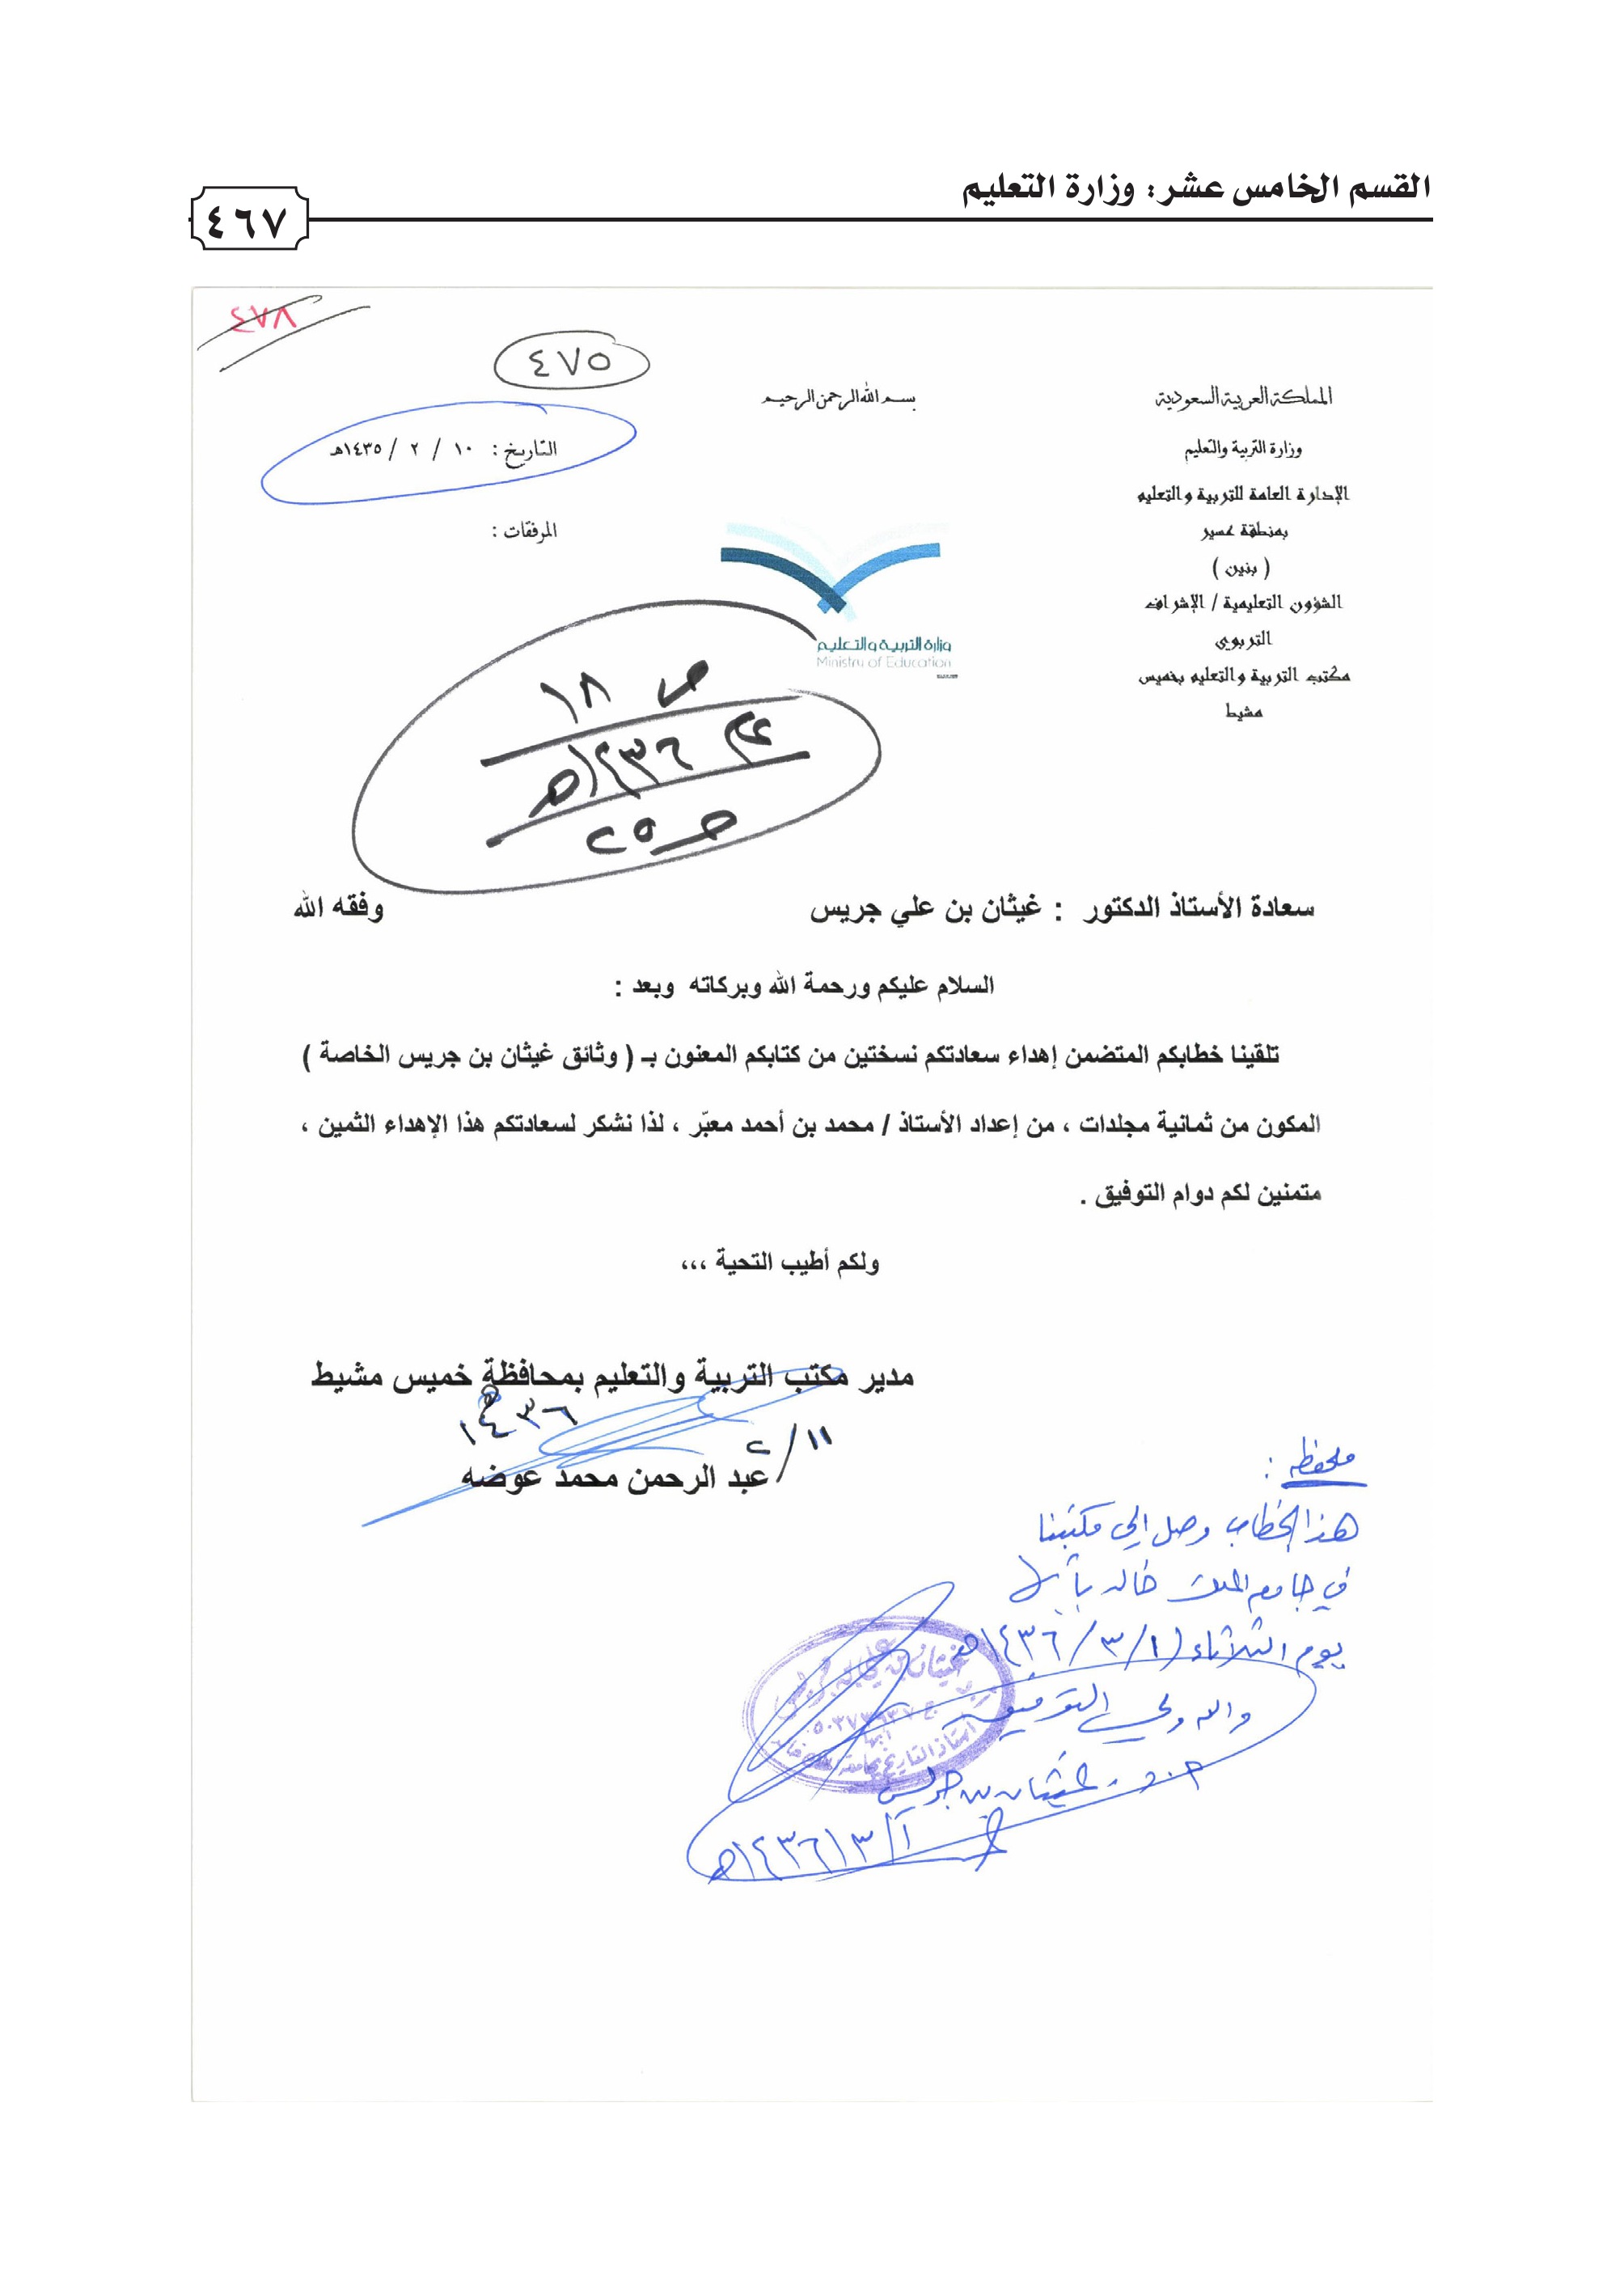 القسم الخامس عشر: وزارة التعليم
٤٦٧
٤٧٨
٤٧٥
المملكة العربية السعودية
وزارة التربية والتعليم
الإدارة العامة للتربية والتعليم
بمنطقة عسير
( بنين )
الشؤون التعليمية / الإشراف
التربوي
مكتب التربية والتعليم بخميس
مشيط
بسم الله الرحمن الرحيم
التاريخ : ١٠ / ٢ / ١٤٣٥هـ
المرفقات :
وزارة التربية والتعليم
Ministry of Education
ص ١٨
عام ١٤٣٦هـ
حـ ٢٥
سعادة الأستاذ الدكتور : غيثان بن علي جريس وفقه الله
السلام عليكم ورحمة الله وبركاته وبعد :
تلقينا خطابكم المتضمن إهداء سعادتكم نسختين من كتابكم المعنون بـ ( وثائق غيثان بن جريس الخاصة )
المكون من ثمانية مجلدات ، من إعداد الأستاذ / محمد بن أحمد معبّر ، لذا نشكر لسعادتكم هذا الإهداء الثمين ،
متمنين لكم دوام التوفيق .
ولكم أطيب التحية ،،،
مدير مكتب التربية والتعليم بمحافظة خميس مشيط
١١/ ٢ ١٤٣٦هـ
عبد الرحمن محمد عوضه
ملحوظه :
هذا الخطاب وصل إلى مكتبنا
في جامعة الملك خالد بأبها
يوم الثلاثاء (١/٣/١٤٣٦هـ
والله ولي التوفيق
أ.د. غيثان بن جريس
١/٣/١٤٣٦هـ
غيثان بن علي جريس
أبها
أستاذ التاريخ بجامعة الملك خالد